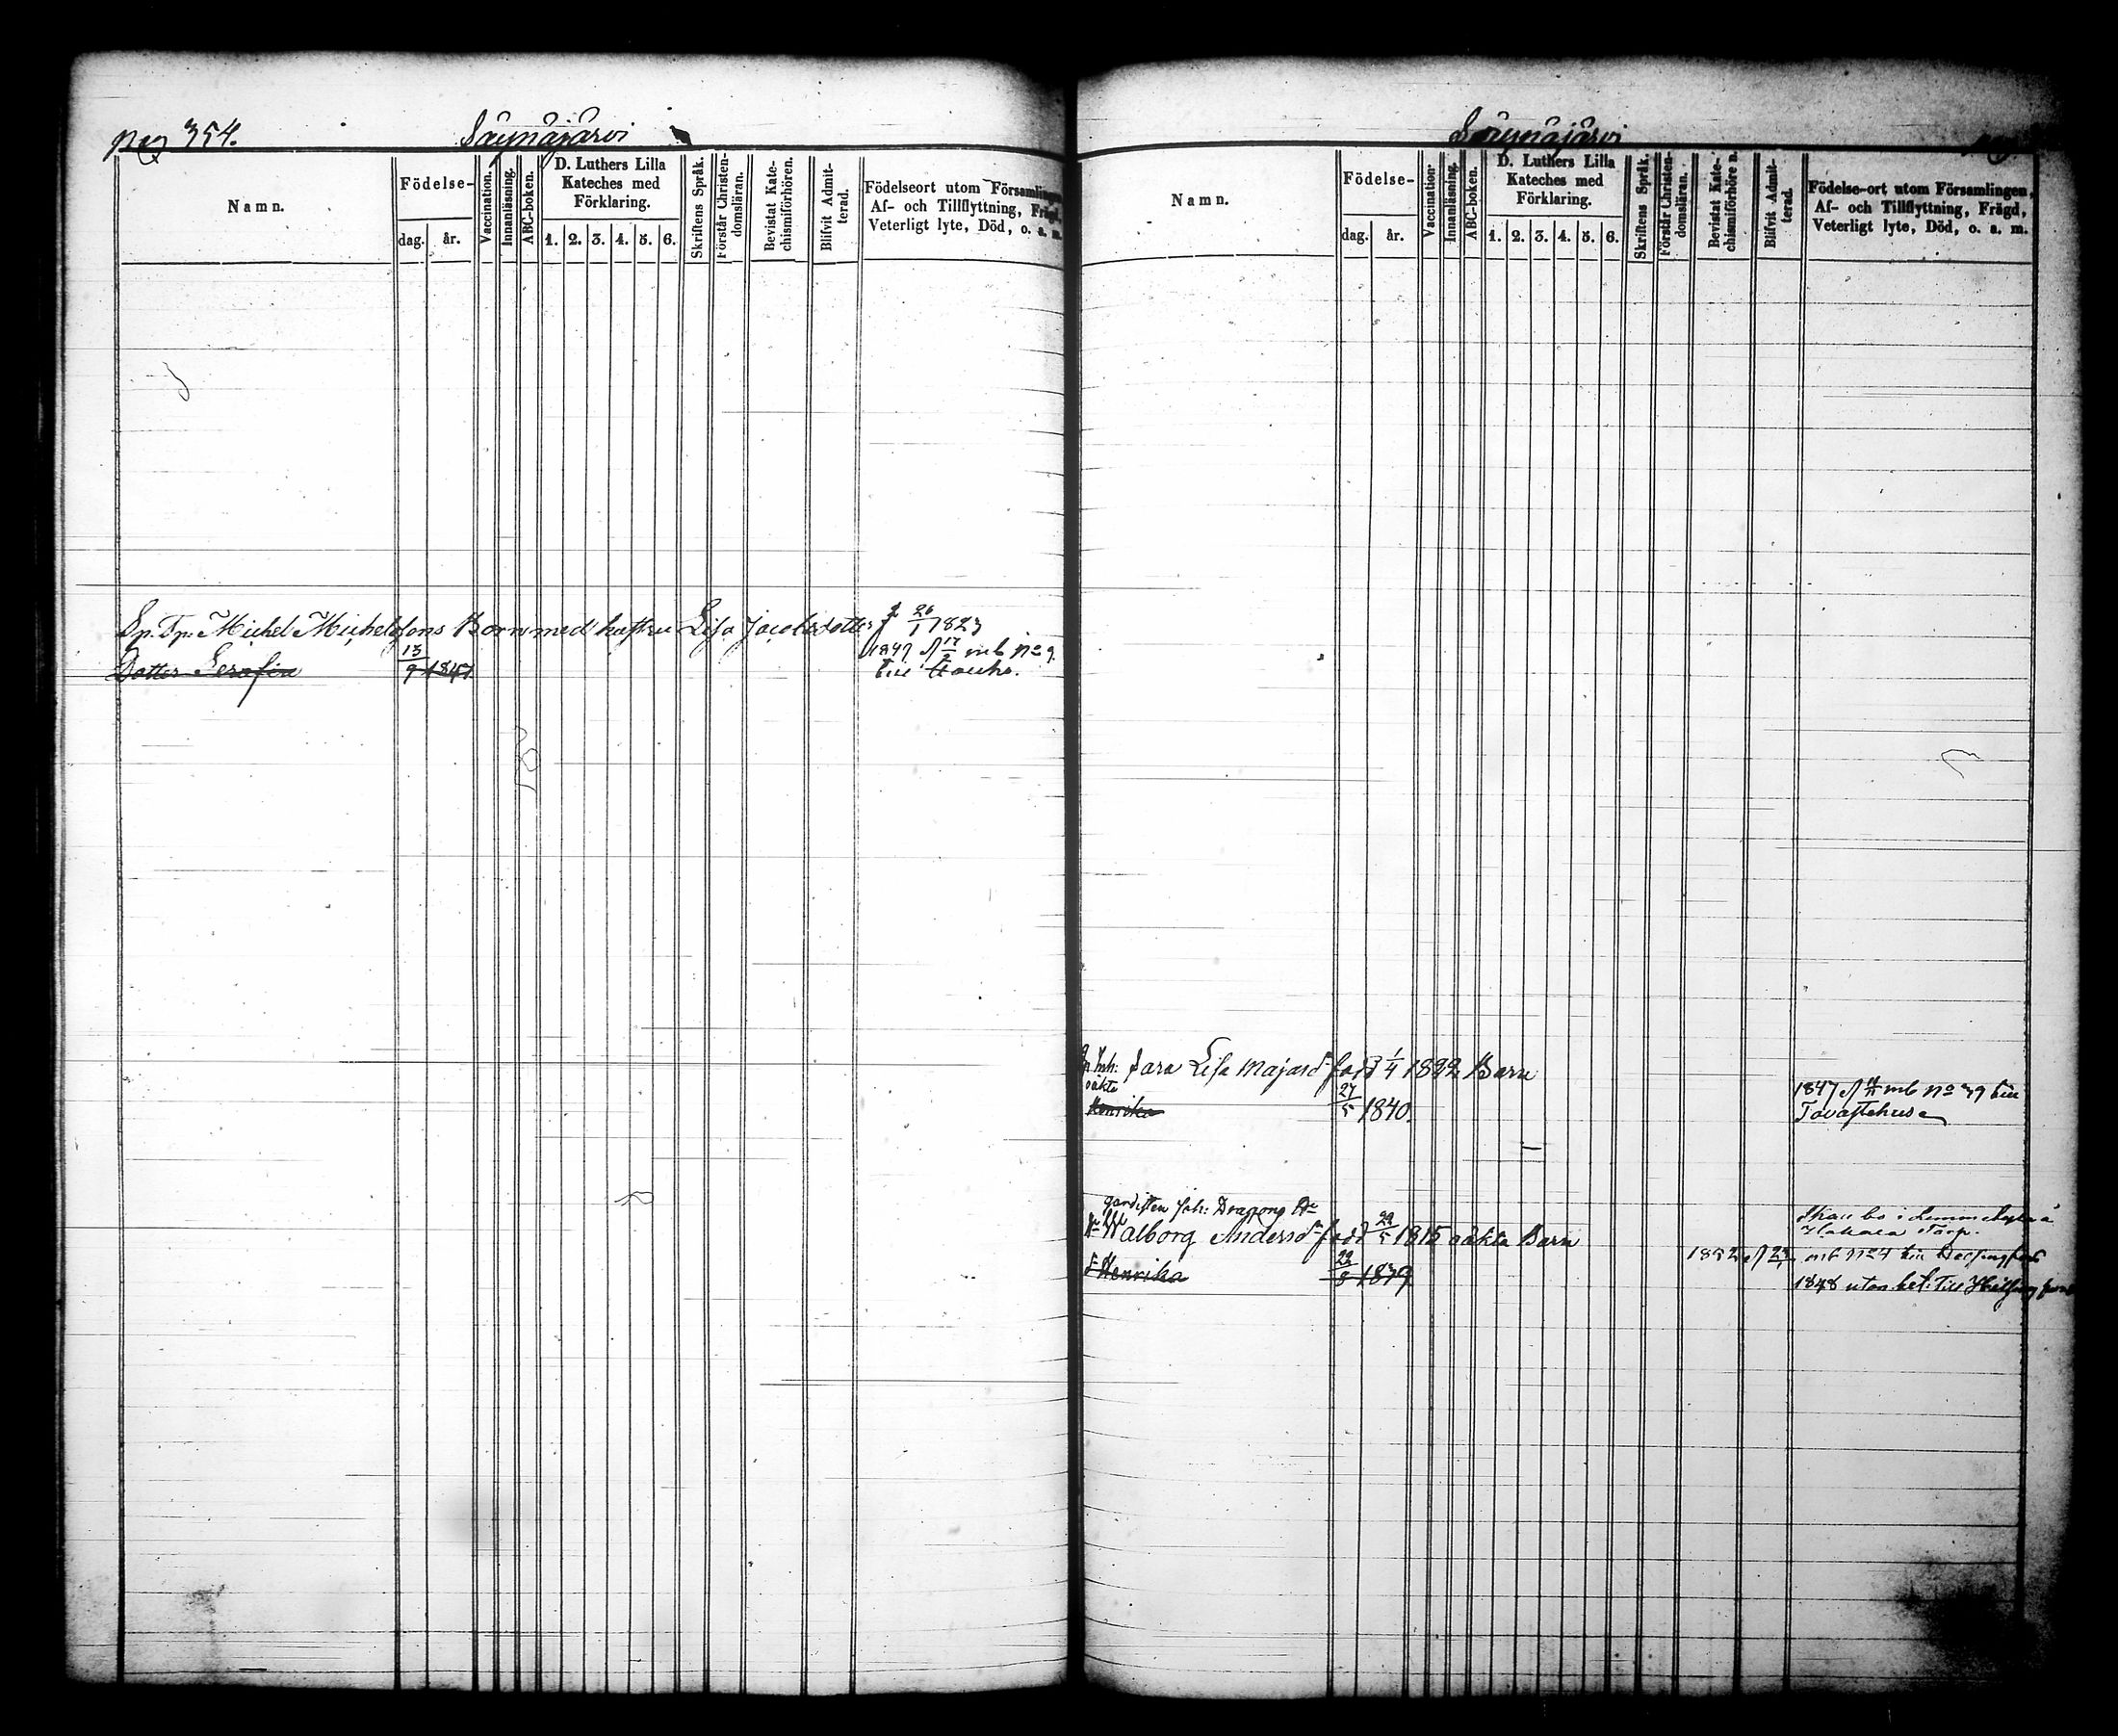 pag 354.
Säynäjärvi
Namn.
Födelse-
dag. år.
Vaccination.
Innanläsning.
ABC-boken.
D. Luthers Lilla
Kateches med
Förklaring.
1. 2. 3. 4. 5. 6.
Skriftens Språk.
Förstår Christen-
domsläran.
Bevistat Kate-
chismiförhören.
Blifvit Admit-
terad.
Födelseort utom Församlingen
Af- och Tillflyttning, Frägd,
Veterligt lyte, Död, o. a. m.
Sp. Tp: Michel Michelssons Barn med hustru Lisa Jacobsdotter f 26/1 1823
Dotter Serafia 13/9 1845
1847 17/2 mb No 9
till
Säynäjärvi
pag.
Namn.
Födelse-
dag. år.
Vaccination.
Innanläsning.
ABC-boken.
D. Luthers Lilla
Kateches med
Förklaring.
1. 2. 3. 4. 5. 6.
Skriftens Språk.
Förstår Christen-
domsläran.
Bevistat Kate-
chismiförhören.
Blifvit Admit-
terad.
Födelse-ort utom Församlingen,
Af- och Tillflyttning, Frägd,
Veterligt lyte, Död, o. a. m.
Inh: Sara Lisa Majasdr född 1/4 1822 Barn
oäkta
Henrika 27/5 1840.
1847 mb No 39 till
Tavastehus
gardisten Joh:
Walborg Andersdr född 1815 oäkta Barn
Henrika 22/8 1839
1852 mb No 4 till Helsingfors
1848 utan bet: till Helsingfors